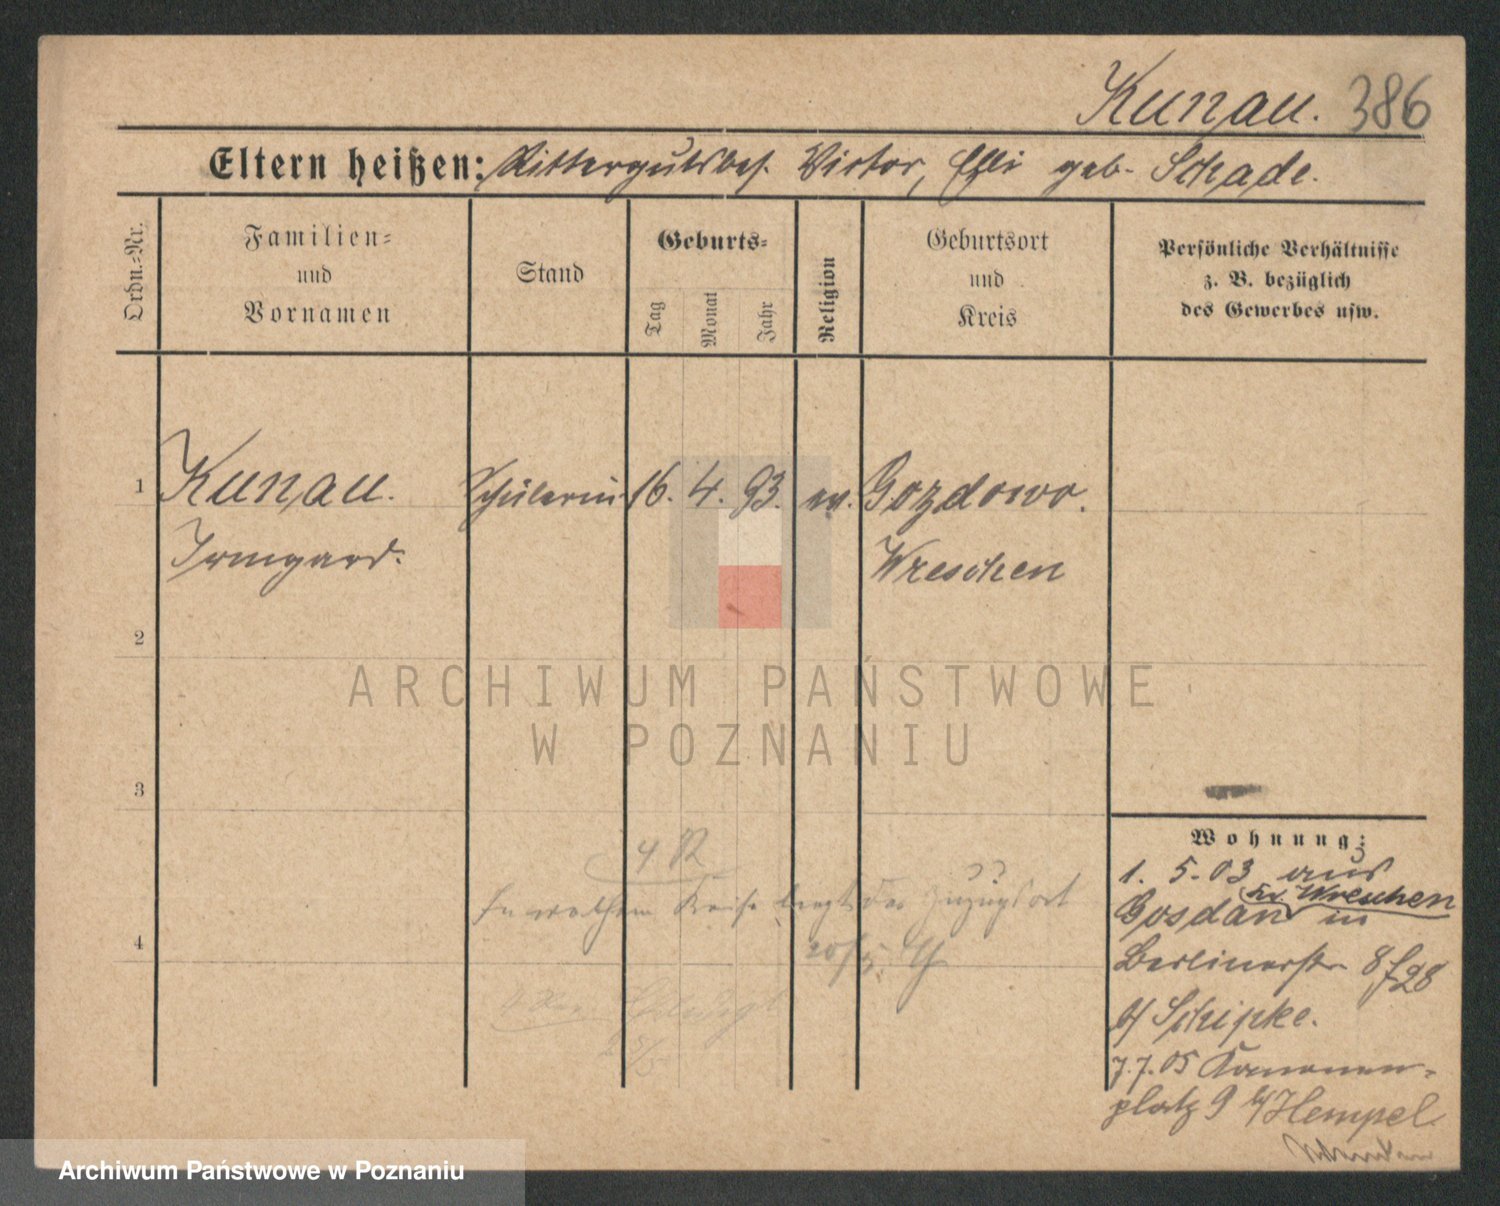 Kunau. 386
Eltern heißen: Rittergutsbes. Victor, Elli geb. Schade.
Ordn.-Nr.
Familien- und Vornamen
Stand
Geburts-
Tag
Monat
Jahr
Religion
Geburtsort und Kreis
Persönliche Verhältnisse
z. B. bezüglich
des Gewerbes usw.
1 Kunau. Schülerin 16. 4. 93. ev. Gozdowo.
Irmgard. Wreschen
2
3
4
In welchem Kreise liegt der Zuzugsort
20/5.
Wohnung:
1. 5. 03 aus
Kr. Wreschen
Gosdan in
Berlinerstr. 8
b/ Schipke.
7. 7. 05 Kanonen-
platz 9 b/ Hempel.
ARCHIWUM PAŃSTWOWE
W POZNANIU
Archiwum Państwowe w Poznaniu